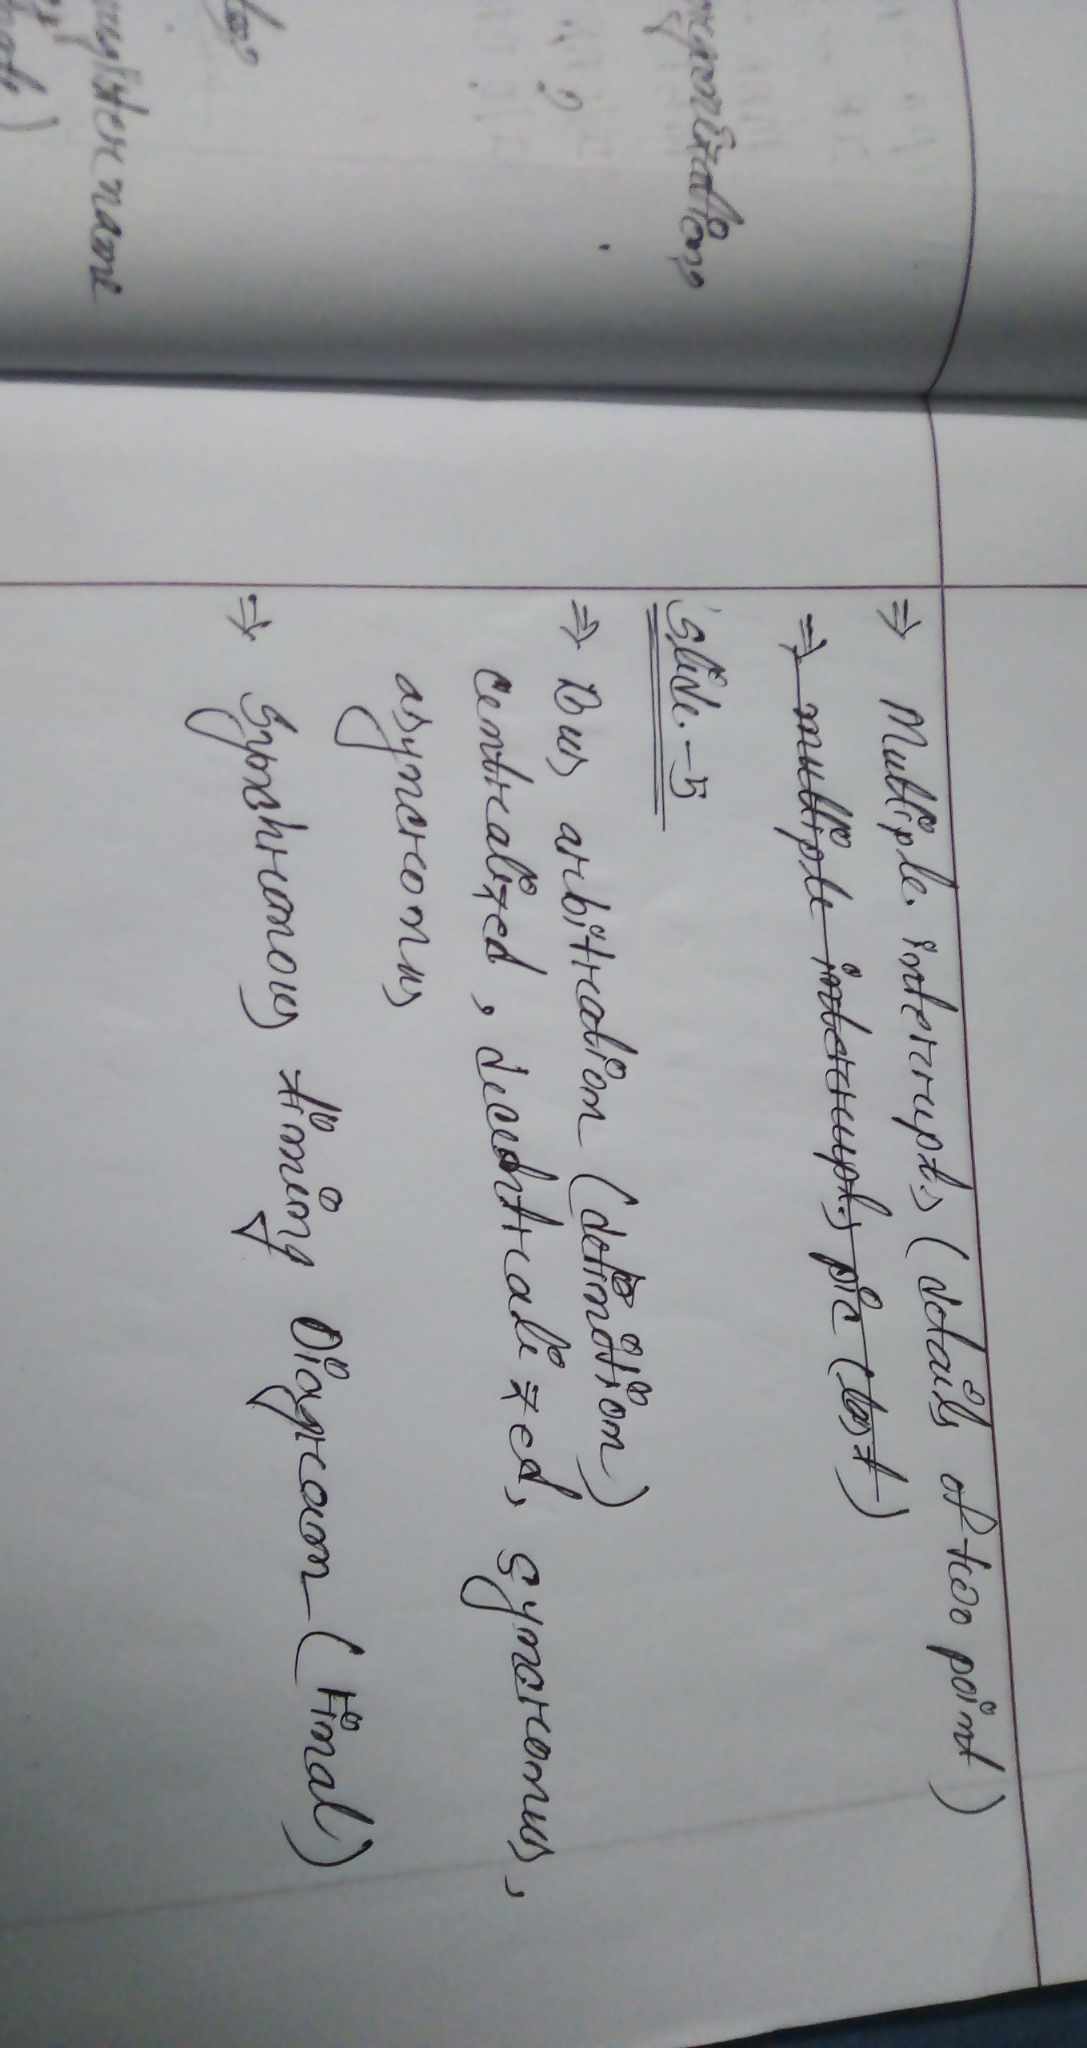 organizations
?
register name
⇒ Multiple interrupts (details of two point)
⇒ multiple interrupts pic (last)
Slide - 5
⇒ Bus arbitration (defination)
centralized, decentralized, syncronus,
asyncronus
⇒ Synchronous timing Diagram (Final)